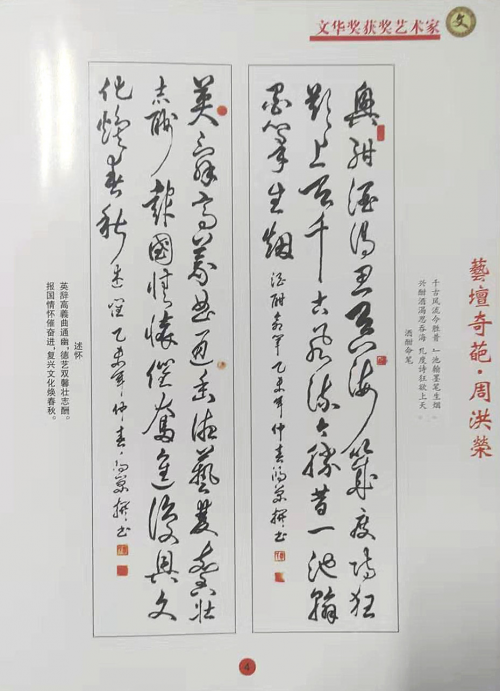 文华奖获奖艺术家
文
藝壇奇葩·周洪榮
酒酣命笔
兴酣酒满思吞海,几度诗狂欲上天。
千古风流今胜昔,一池翰墨笔生烟。
興酣酒满思吞海幾度诗狂
欲上天千古風流今勝昔一池翰
墨筆生烟 酒酣命筆 乙未年仲春洪榮撰书
英辞高義曲通幽德藝雙馨壮
志酬報國情懷催奮進復興文
化焕春秋 述怀 乙未年仲春洪榮撰书
述怀
英辞高義曲通幽,德艺双馨壮志酬。
报国情怀催奋进,复兴文化焕春秋。
4